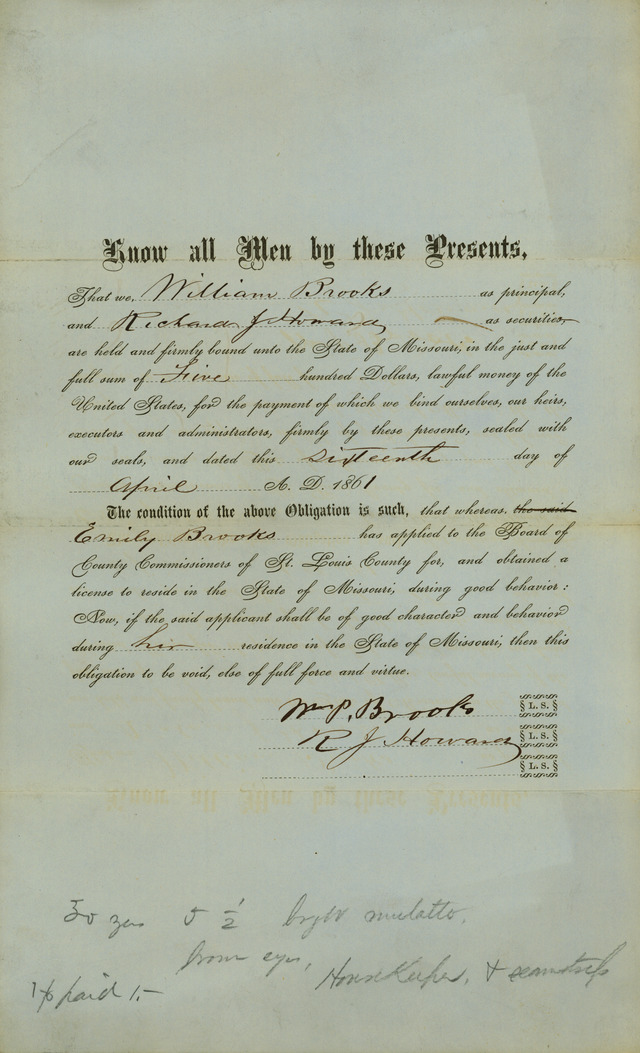 Know all Men by these Presents,
That we, William Brooks as principal,
and Richard J Howard as securities,
are held and firmly bound unto the State of Missouri, in the just and
full sum of Five hundred Dollars, lawful money of the
United States, for the payment of which we bind ourselves, our heirs,
executors and administrators, firmly by these presents, sealed with
our seals, and dated this Sixteenth day of
April A. D. 1861
The condition of the above Obligation is such, that whereas, the said
Emily Brooks has applied to the Board of
County Commissioners of St. Louis County for, and obtained a
license to reside in the State of Missouri, during good behavior:
Now, if the said applicant shall be of good character and behavior
during her residence in the State of Missouri, then this
obligation to be void, else of full force and virtue.
Wm P. Brooks § L. S. §
R J Howard § L. S. §
§ L. S. §
30 yrs 5 ½ bright mulatto,
brown eyes,
HouseKeeper, & seamstress
paid 1.-